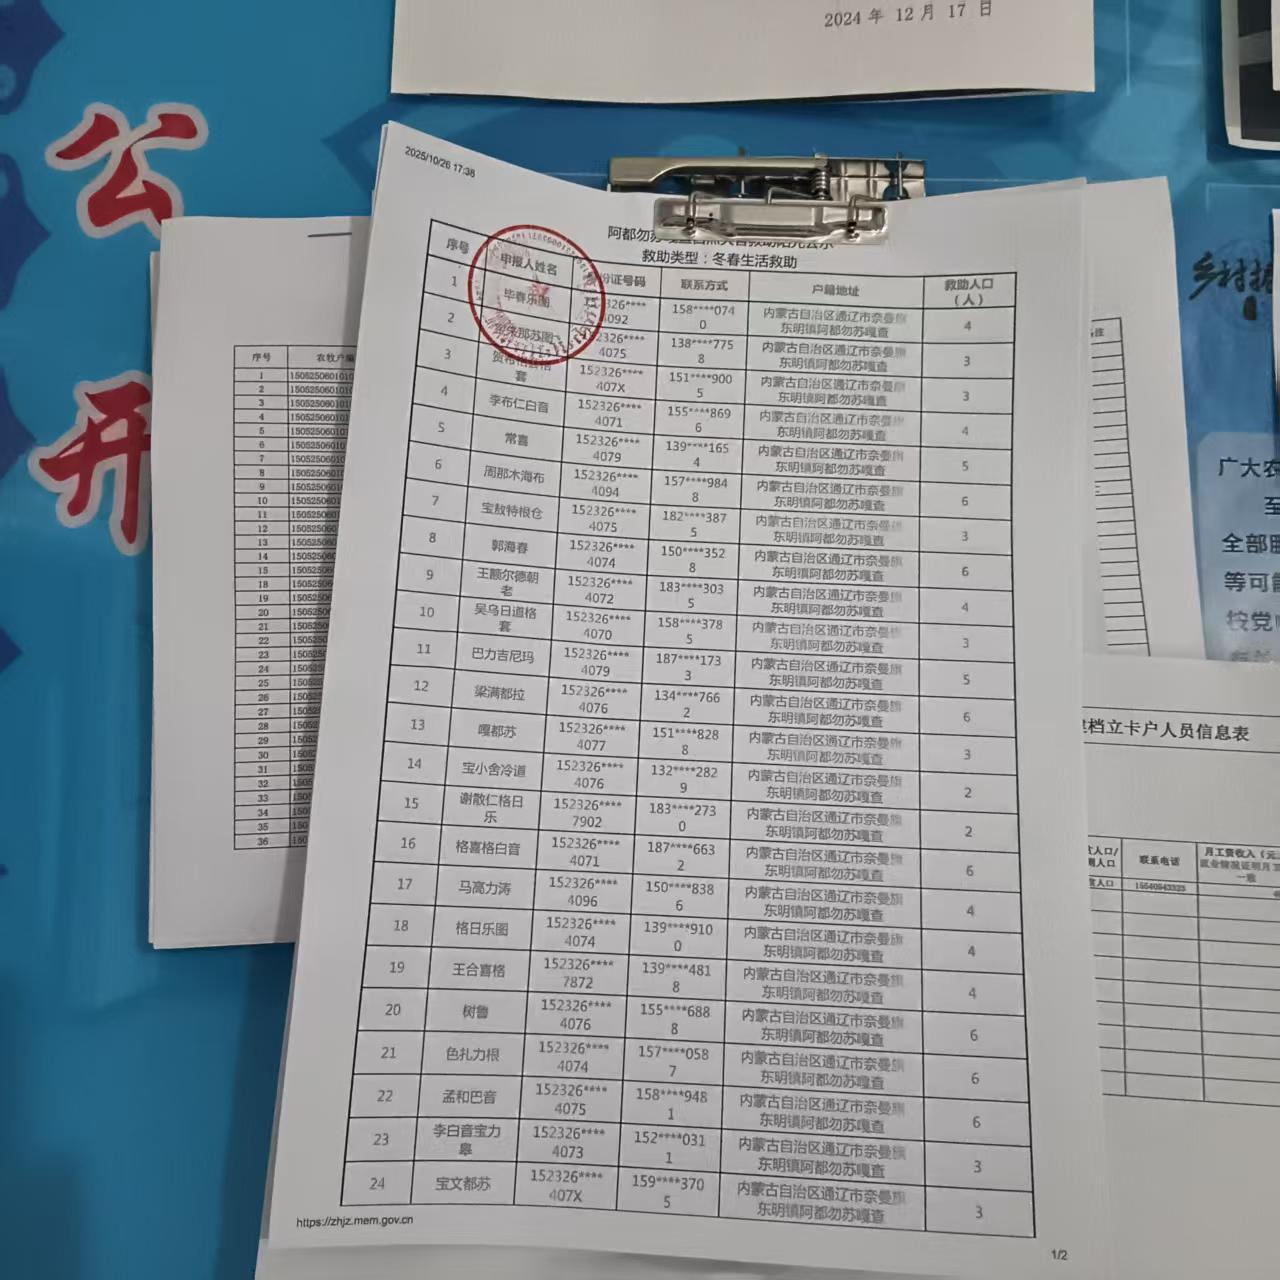 2024 年 12 月 17 日
公
开
2025/10/26 17:38
救助类型：冬春生活救助
序号 申报人姓名 份证号码 联系方式 户籍地址 救助人口（人）
1 毕春乐图 152326****4092 158****0740 内蒙古自治区通辽市奈曼旗东明镇阿都勿苏嘎查 4
2 那苏图 152326****4075 138****7758 内蒙古自治区通辽市奈曼旗东明镇阿都勿苏嘎查 3
3 贺布和套 152326****407X 151****9005 内蒙古自治区通辽市奈曼旗东明镇阿都勿苏嘎查 3
4 李布仁白音 152326****4071 155****8696 内蒙古自治区通辽市奈曼旗东明镇阿都勿苏嘎查 4
5 常喜 152326****4079 139****1654 内蒙古自治区通辽市奈曼旗东明镇阿都勿苏嘎查 5
6 周那木海布 152326****4094 157****9848 内蒙古自治区通辽市奈曼旗东明镇阿都勿苏嘎查 6
7 宝敖特根仓 152326****4075 182****3875 内蒙古自治区通辽市奈曼旗东明镇阿都勿苏嘎查 3
8 郭海春 152326****4074 150****3528 内蒙古自治区通辽市奈曼旗东明镇阿都勿苏嘎查 6
9 王额尔德朝老 152326****4072 183****3035 内蒙古自治区通辽市奈曼旗东明镇阿都勿苏嘎查 4
10 吴乌日道格套 152326****4070 158****3785 内蒙古自治区通辽市奈曼旗东明镇阿都勿苏嘎查 3
11 巴力吉尼玛 152326****4079 187****1733 内蒙古自治区通辽市奈曼旗东明镇阿都勿苏嘎查 5
12 梁满都拉 152326****4076 134****7662 内蒙古自治区通辽市奈曼旗东明镇阿都勿苏嘎查 6
13 嘎都苏 152326****4077 151****8288 内蒙古自治区通辽市奈曼旗东明镇阿都勿苏嘎查 3
14 宝小舍冷道 152326****4076 132****2829 内蒙古自治区通辽市奈曼旗东明镇阿都勿苏嘎查 2
15 谢散仁格日乐 152326****7902 183****2730 内蒙古自治区通辽市奈曼旗东明镇阿都勿苏嘎查 2
16 格喜格白音 152326****4071 187****6632 内蒙古自治区通辽市奈曼旗东明镇阿都勿苏嘎查 6
17 马高力涛 152326****4096 150****8386 内蒙古自治区通辽市奈曼旗东明镇阿都勿苏嘎查 4
18 格日乐图 152326****4074 139****9100 内蒙古自治区通辽市奈曼旗东明镇阿都勿苏嘎查 4
19 王合喜格 152326****7872 139****4818 内蒙古自治区通辽市奈曼旗东明镇阿都勿苏嘎查 4
20 树鲁 152326****4076 155****6888 内蒙古自治区通辽市奈曼旗东明镇阿都勿苏嘎查 6
21 色扎力根 152326****4074 157****0587 内蒙古自治区通辽市奈曼旗东明镇阿都勿苏嘎查 6
22 孟和巴音 152326****4075 158****9481 内蒙古自治区通辽市奈曼旗东明镇阿都勿苏嘎查 6
23 李白音宝力皋 152326****4073 152****0311 内蒙古自治区通辽市奈曼旗东明镇阿都勿苏嘎查 3
24 宝文都苏 152326****407X 159****3705 内蒙古自治区通辽市奈曼旗东明镇阿都勿苏嘎查 3
https://zhjz.mem.gov.cn
1/2
序号 农牧户编
1 1505250601010
2 1505250601010
3 1505250601010
4 1505250601010
5 150525060101
6 150525060101
7 150525060101
8 150525060101
9 150525060101
10 15052506010
11 15052506010
12 1505250601
13 1505250601
14 1505250601
15 150525060
18 150525060
19 150525060
20 150525060
21 15052506
22 15052506
23 15052506
24 15052506
25 1505250
26 1505250
27 1505250
28 1505250
29 150525
30 150525
31 15052
32 15052
33 15052
34 1505
35 1505
36 1505
乡村振
广大农
至
全部
等可能
按党
档立卡户人员信息表
联系电话
月工资收入（元
一致
15540543323